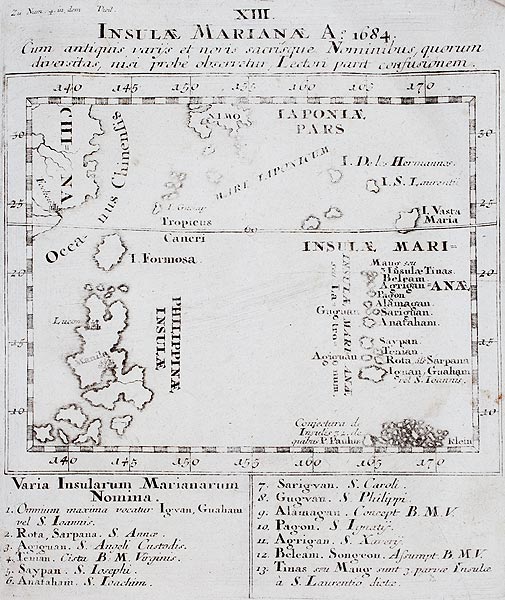 Zu Num. 4. in dem Theil.
XIII.
INSULÆ MARIANÆ Aº 1684.
Cum antiquis variis et novis sacrisque Nominibus, quorum
diversitas, nisi probe observetur Lectori parit confusionem.
140 145 150 155 160 165 170
30
25
20
15
10
CHINA
Oceanus Chinensis
XIMO
IAPONIÆ
PARS
MARE IAPONICUM
I. De los Hermanos.
I. S. Laurentii
I. Vasta
Maria
Tropicus
Cancri
I. Formosa.
INSULÆ MARIANÆ
Maug seu
3 Insulæ Tinas.
Beleam.
Agrigan
Pagon
Alamagan.
Gugvan
Sarigvan.
Anataham.
INSULÆ MARIANÆ
seu Latronum.
Saypan.
Tenian.
Agiguan
Rota, als Sarpana
Igvan, Guaham
vel S. Ioannis.
PHILIPPINÆ
INSULÆ
Lucon
Manila
Conjectura de
Insulis 72. de
quibus P. Paulus Klein
30
25
20
15
10
140 145 150 155 160 165 170
Varia Insularum Marianarum
Nomina.
1. Omnium maxima vocatur Igvan, Guaham
vel S. Ioannis.
2. Rota, Sarpana. S. Annæ.
3. Agiguan. S. Angeli Custodis.
4. Tenian. Cista B. M. Virginis.
5. Saypan. S. Iosephi.
6. Anataham. S. Ioachim.
7. Sarigvan. S. Caroli.
8. Gugvan. S. Philippi.
9. Alamagan. Concept. B. M. V.
10. Pagon. S. Ignatij.
11. Agrigan. S. Xaverij.
12. Beleam, Songeon. Assumpt. B. M. V.
13. Tinas seu Maug sunt 3 parvæ Insulæ
à S. Laurentio dictæ.